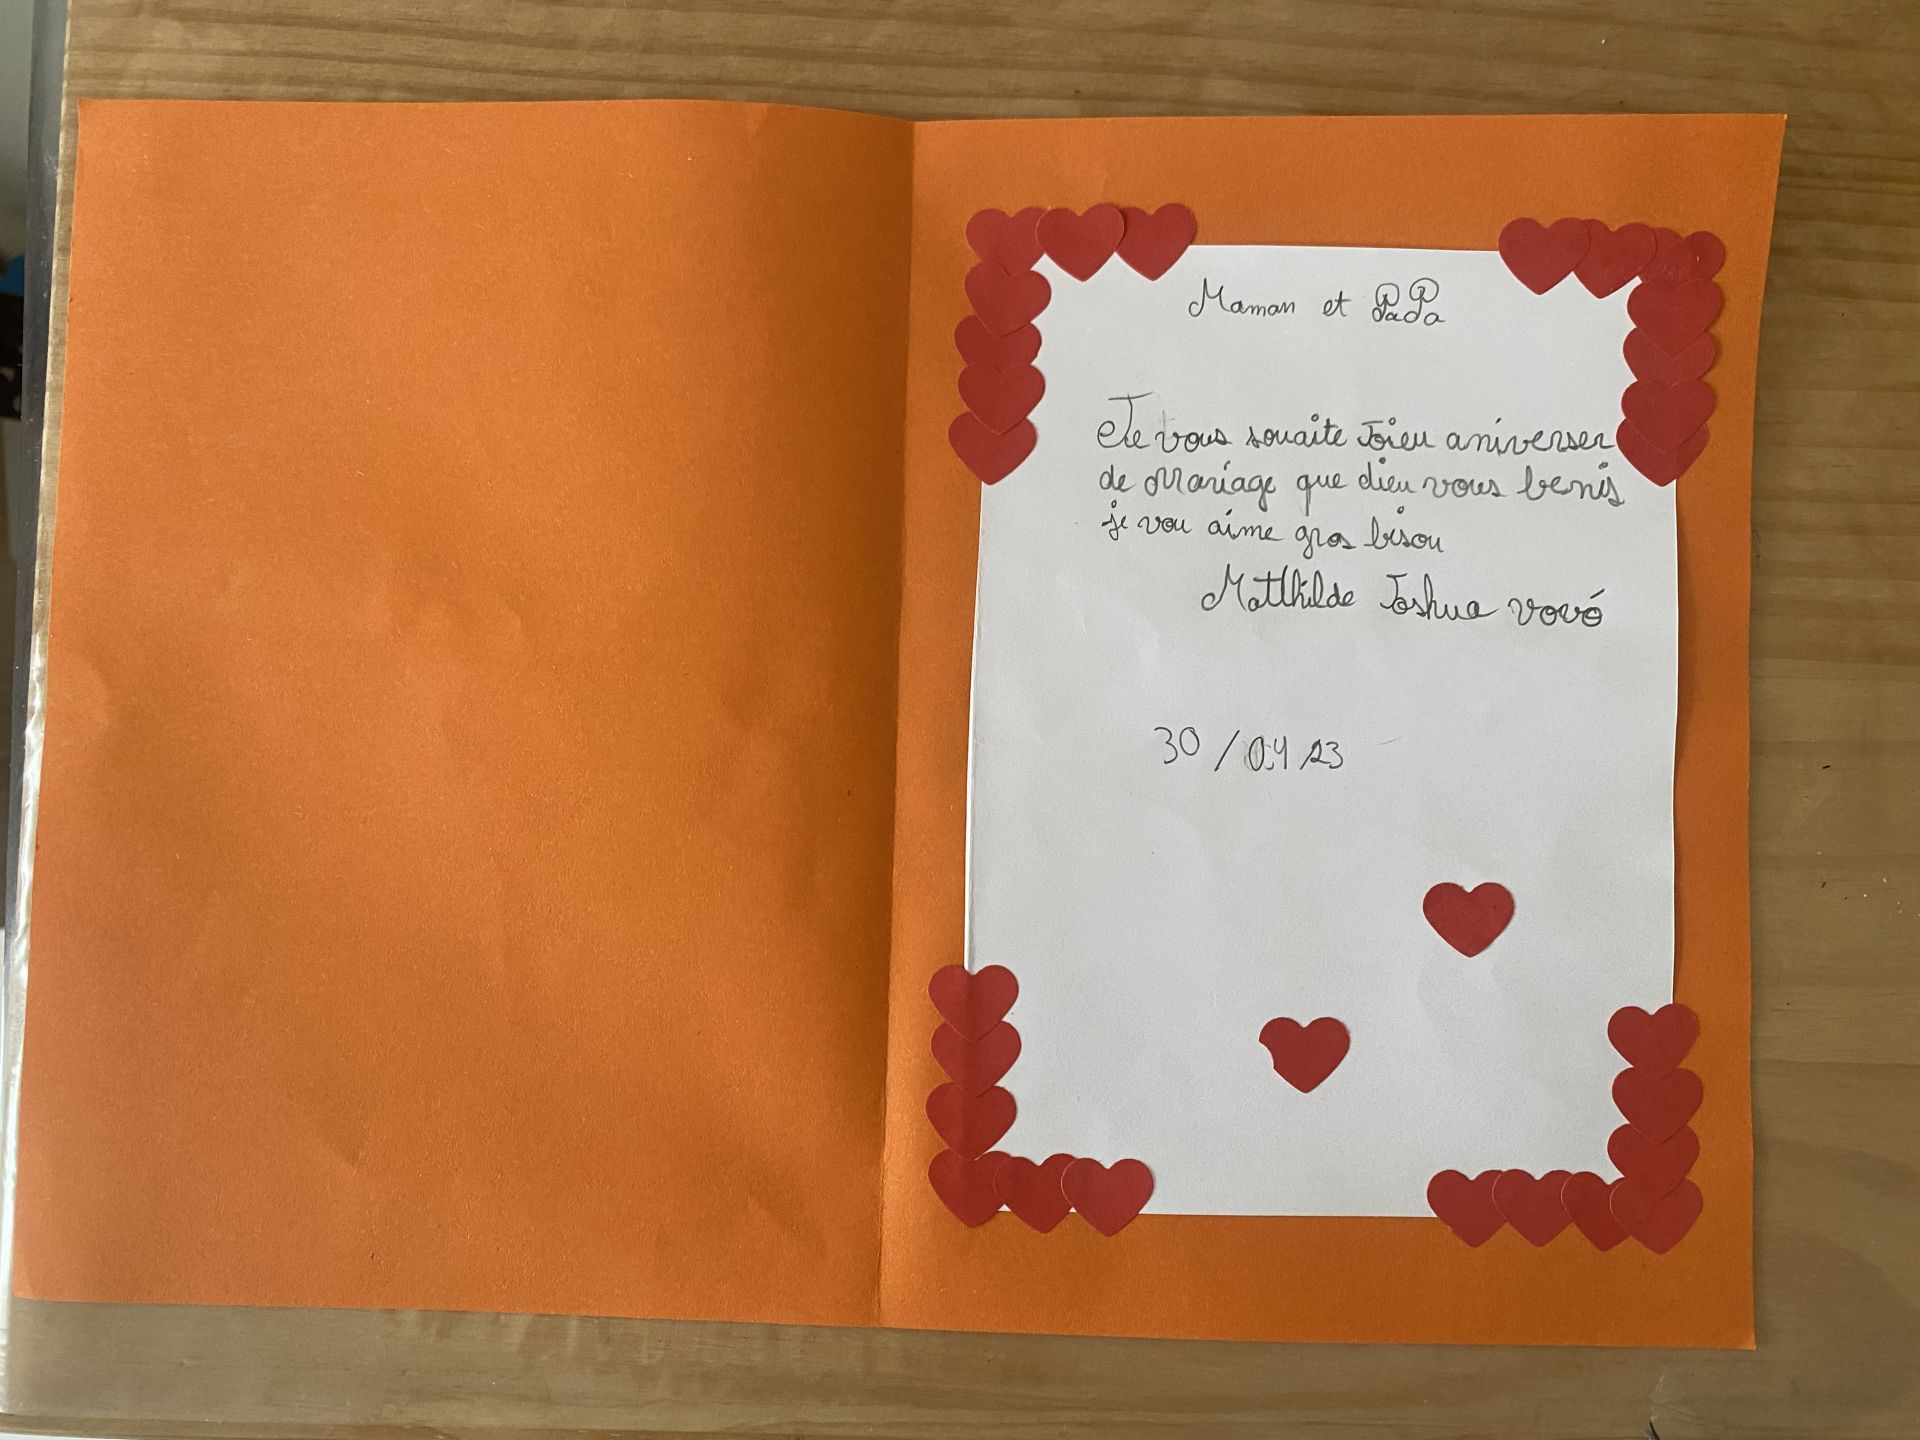 Maman et PaPa
Je vous souaite Joieu aniverser
de Mariage que dieu vous benis
je vou aime gros bisou
Matthilde Joshua vovó
30/04/23